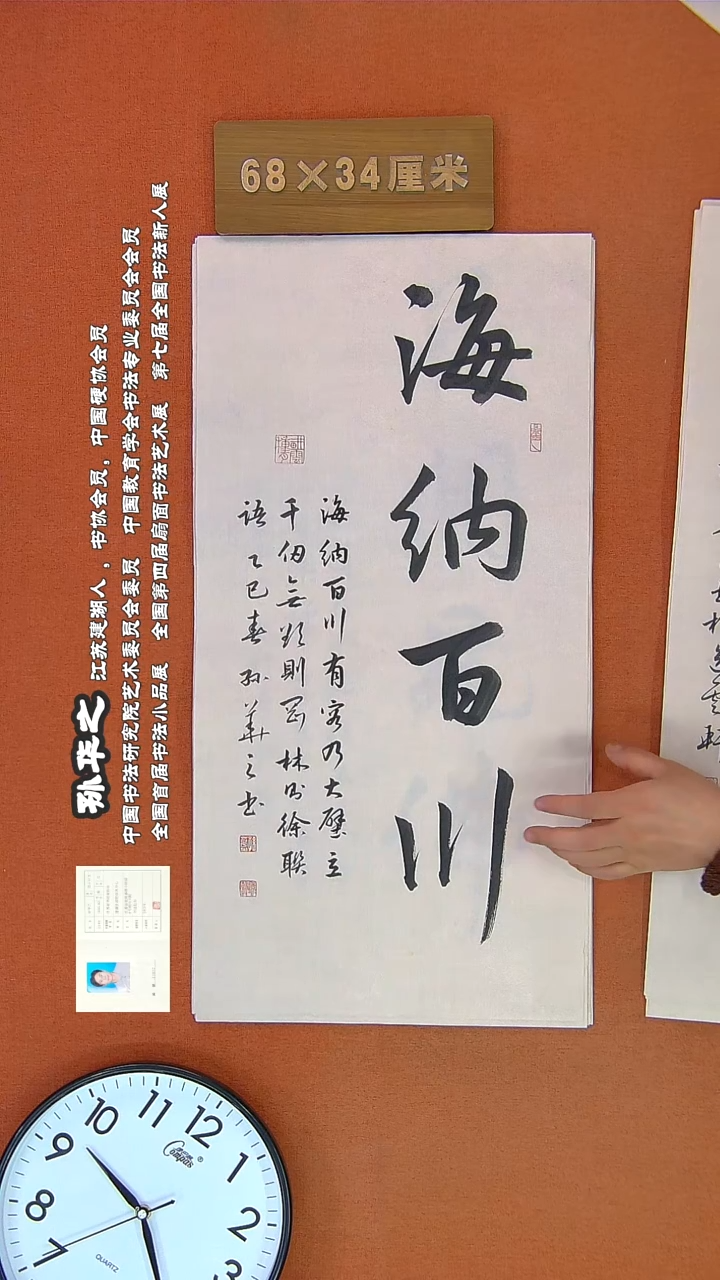 68×34厘米
海纳百川
海纳百川有容乃大壁立
千仞無欲則罡林则徐联
语 乙巳春 孙華之书
孙华之 江苏建湖人，书协会员，中国硬协会员
中国书法研究院艺术委员会委员 中国教育学会书法专业委员会会员
全国首届书法小品展 全国第四届扇面书法艺术展 第七届全国书法新人展
7 8 9 10 11 12 1 2 3
Compas®
QUARTZ